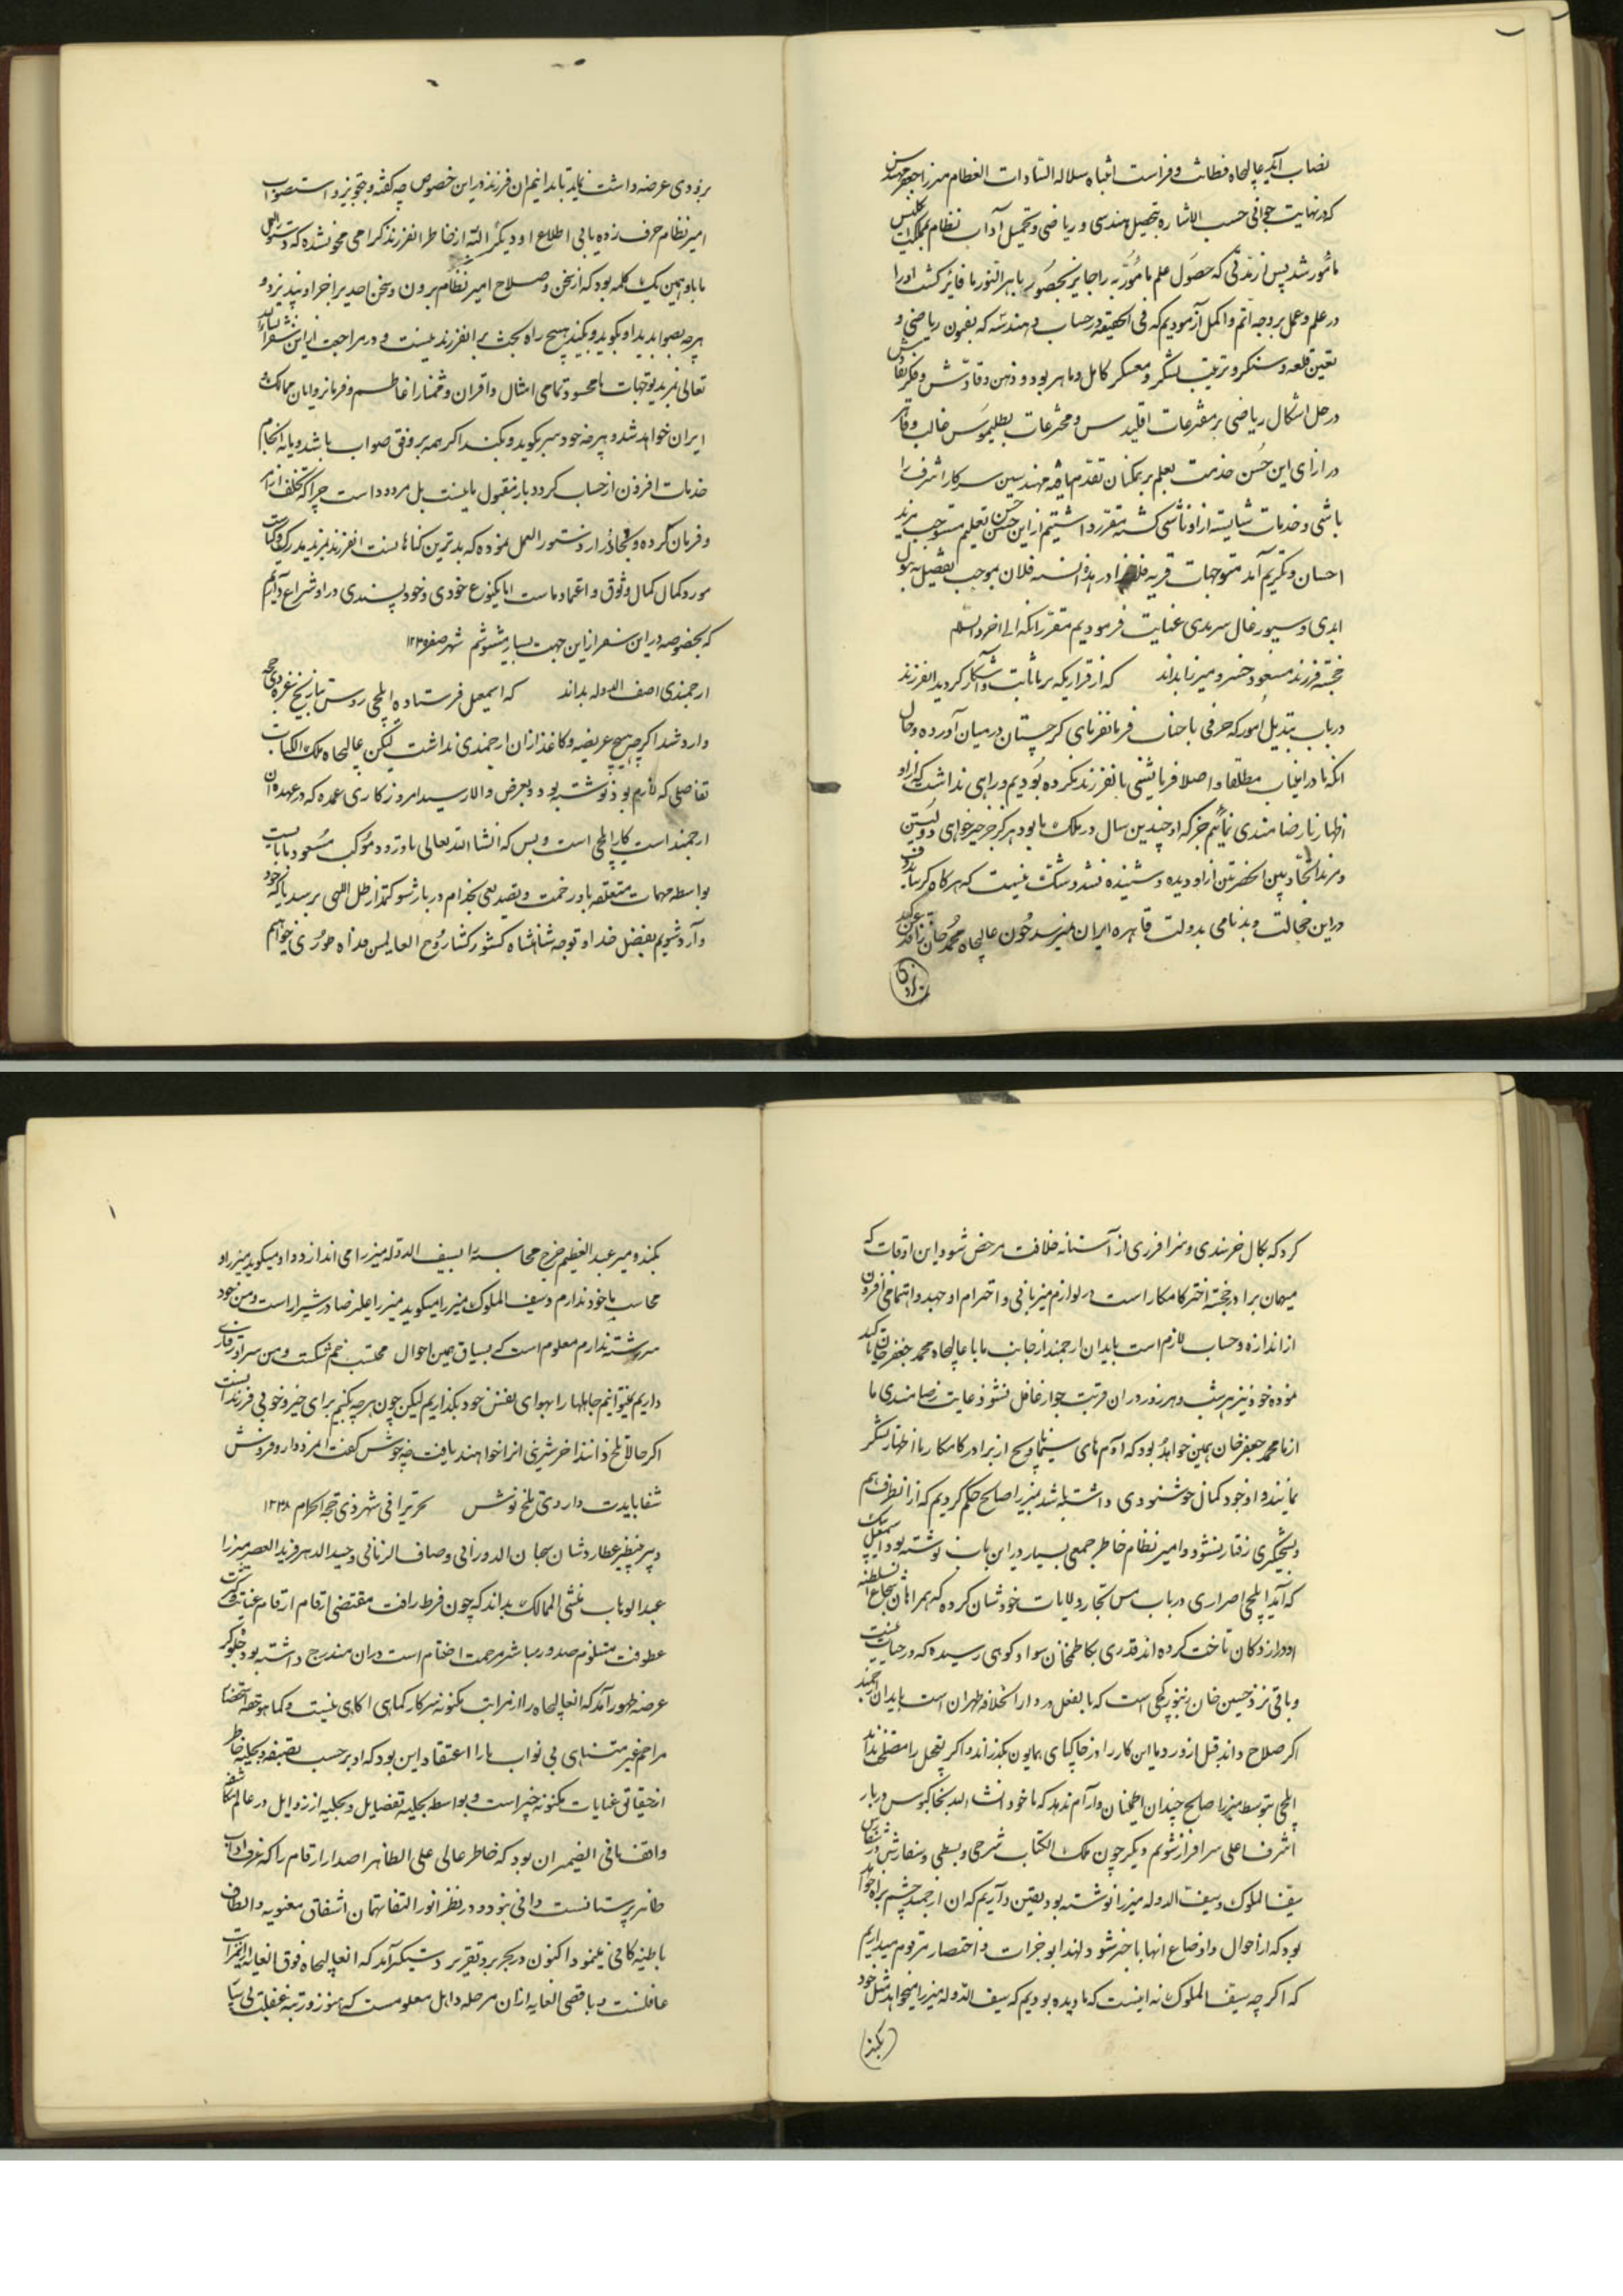 نصاب آید عالیجاه فطانت و فراست انتباه سلاله السادات العظام میرزا جعفر مهندس
که در نهایت جوانی حسب الاشاره بتحصیل هندسی و ریاضی و تکمیل آداب نظام بمملکت انگلیس
مأمور شد پس از زمانی که حصول علم مأمور به را حایز بحضور باهر النور ما فائز گشت او را
در علم و عمل بر وجه اتم و اکمل آزمودیم که فی الحقیقه در حساب و هندسه که بفنون ریاضی و
تعیین قلعه و سنگر و ترتیب لشکر و معسکر کامل و ماهر بود و ذهن وقادش و فکر نقادش
در حل اشکال ریاضی بر مقترحات اقلیدس و مخترعات بطلیموس غالب و فائق
در ازای این حسن خدمت بعلم بر همکنان تقدم یافته مهندسین سرکار اشرف را
باشی و خدمات شایسته از او ناشی گشته مقرر داشتیم از این حسن تعلیم مستوجب مزید
احسان و تکریم آمد متوجهات قریه فلان را در هذه السنه فلان بموجب تفصیل به تیول
ابدی و سیورغال سرمدی عنایت فرمودیم مقرر آنکه الی آخره والسلام
خجسته فرزند مسعود خسرو میرزا بداند که از قراریکه بر ما ثابت و آشکار گردید آنفرزند
در باب تبدیل امور که حرفی با جناب فرمانفرمای گرجستان در میان آورده و حال
آنکه ما در اینباب مطلقا و اصلا فرمایشی بآنفرزند نکرده بودیم و راهی نداشت که از او
اظهار نارضامندی نمائیم جز که او چندین سال در ملک ما بود هرگز جز خیرخواهی دولتین
و مزید اتحاد بین الحضرتین از او دیده و شنیده نشد و شک نیست که هرگاه
در این خجالت و بدنامی بدولت قاهره ایران میرسد چون عالیجاه محمد خان
بزودی
بزودی عرضه داشت نماید تا بدانیم آن فرزند در این خصوص چه گفته و بتجویز و استصواب
امیر نظام حرف زده یا بی اطلاع او و دیگر البته از خاطر آنفرزند گرامی محو نشده که دستورالعمل
ما باو همین یک کلمه بود که از سخن و صلاح امیر نظام بیرون و سخن احدی را جز او نپذیرد و
هر چه بصوابدید او بگوید و بکند هیچ راه بحث بر آنفرزند نیست و در مراجعت از این سفر انشاءالله
تعالی بمزید توجهات ما محسود تمامی امثال و اقران و ممتاز اعاظم و فرمانروایان ممالک
ایران خواهد شد و هر چه خود سر بگوید و بکند اگر همه بر وفق صواب باشد و یا به انجام
خدمات افزون از حساب گردد باز مقبول ما نیست بل مردود است چرا که تخلف از امر
و فرمان کرده و تجاوز از دستورالعمل نموده که بدترین گناها نست آنفرزند
مورد کمال کمال وثوق و اعتماد ماست اما یکنوع خودی و خودپسندی در او سراغ داریم
که بخصوصه در این سفر از این جهت بسیار مشوشیم شهر صفر ۱۲۴۵
ارجمندی آصف الدوله بداند که اسمعیل فرستاده ایلچی روس بتاریخ غره ذی حجه
وارد شد اگر چه هیچ عریضه و کاغذ از آن ارجمندی نداشت لیکن عالیجاه ملک الکتاب
تفاصیلی که لازم بود نوشته بود و بعرض والا رسید امروز کاری عمده که در عهده آن
ارجمند است کار ایلچی است و بس که انشاءالله تعالی تا ورود موکب مسعود ما بایست
بواسطه مهمات متعلقه باو زحمت و تصدیعی بخدام دربار شوکتمدار ظل اللهی برسد تا که خود
وارد شویم بفضل خدا و توجه شاهنشاه کشور گشا روح العالمین فداه طوری خواهیم
کرد که بکمال خرسندی و سرافرازی از آستانه خلافت مرخص شود این اوقات که
میهمان برادر خجسته اختر کامکار است در لوازم میزبانی و احترام او جهد و اهتمامی افزون
از اندازه و حساب لازم است باید آن ارجمند از جانب ما با عالیجاه محمد جعفر خان تاکید
نموده خود نیز هر شب و هر روز در آن قربت جوار غافل نشود رعایت رضامندی ما
از ما محمد جعفر خان همین خواهد بود که آدم های از برادر کامکار ما اظهار تشکر
نمایند و او خود کمال خوشنودی داشته باشد میرزا صالح حکم کردیم که از آنطرف هم
و بتحکمی رفتار نشود و امیر نظام خاطر جمعی بسیار در این باب نوشته بود اسمعیل بیک
که آمد ایلچی اصراری در باب مس تجار ولایات خودشان کرده که همراهان شجاع السلطنه
او در ارزوکان تاخت کرده اند قدری بکاظمخان سوادکوهی رسیده که در حیات نیست
و باقی نزد حسین خان است که بالفعل در دارالخلافه طهران است باید آن ارجمند
اگر صلاح داند قبل از ورود ما این کار را در خاکپای همایون بگذراند و اگر تعجیل را مصلحت نداند
ایلچی بتوسط میرزا صالح چندان اطمینان و آرام ندهد که تا خود انشاءالله بخاکبوس دربار
اشرف اعلی سرافراز شویم دیگر چون ملک الکتاب شرحی و بسطی و سفارش در سفارش
سیف الملوک و سیف الدوله میرزا نوشته بود یقین داریم که آن ارجمند چشم براه خواهد
بود که از احوال و اوضاع آنها با خبر شود لهذا بر وجه ایجاز و اختصار مرقوم میداریم
که اگر چه سیف الملوک نه اینست که ما دیده بودیم که سیف الدوله میرزا میخواهد مثل خود
بکند
بکند و میر عبدالعظیم خرج محاسبه را بسیف الدوله میرزا می اندازد و او میگوید میرزا و
محاسب با خود ندارم و سیف الملوک میرزا میگوید میرزا علیرضا در شیراز است و من خود
سررشته ندارم معلوم است که بسیاق همین احوال محتسب خم شکست و من سر او در قفای
داریم نمیتوانیم جاهلها را بهوای نفس خود بگذاریم لیکن چون هر چه بکنیم برای خیر و خوبی فرزند است
اگر حالا تلخ دانند آخر شیرینی آنرا خواهند یافت چه خوش گفت آنمرد دارو فروش
شفا بایدت داروی تلخ نوش تحریرا فی شهر ذی حجه الحرام ۱۲۳۸
دبیر بینظیر عطارد شان سحبان الدورانی وصاف الزمانی وحید الدهر فرید العصر میرزا
عبدالوهاب منشی الممالک بداند که چون فرط رأفت مقتضی ارقام ارقام عنایت
عطوفت مستلزم صدور مناشیر مرحمت اختتام است در آن مندرج داشته بود جلوه گر
عرصه ظهور آمد که آنعالیجاه را از مراتب مکنونه سرکار کماهی آگاهی نیست و کما هو حقه استحضار
مراحم غیر متناهی نی نواب ما را اعتقاد این بود که او بر حسب تصفیه و تجلیه خاطر
از حقایق عنایات مکنونه خبیر است و بواسطه تحلیه بفضایل و تخلیه از رذایل در عالم مکاشفه
واقف مافی الضمیر آن بود که خاطر عالی علی الظاهر اصدار ارقام را که عرف و آداب
ظاهر پرستانست وافی نبود و در نظر انور التفاتهای آن اشفاق معنویه و الطاف
باطنیه کافی مینمود اکنون در تحریر و تقریر دستگیر آمد که آنعالیجاه فوق الغایه از آنمراتب
غافلست و باقصی الغایه از آن مرحله ذاهل معلومست که هنوز در تیه غفلت